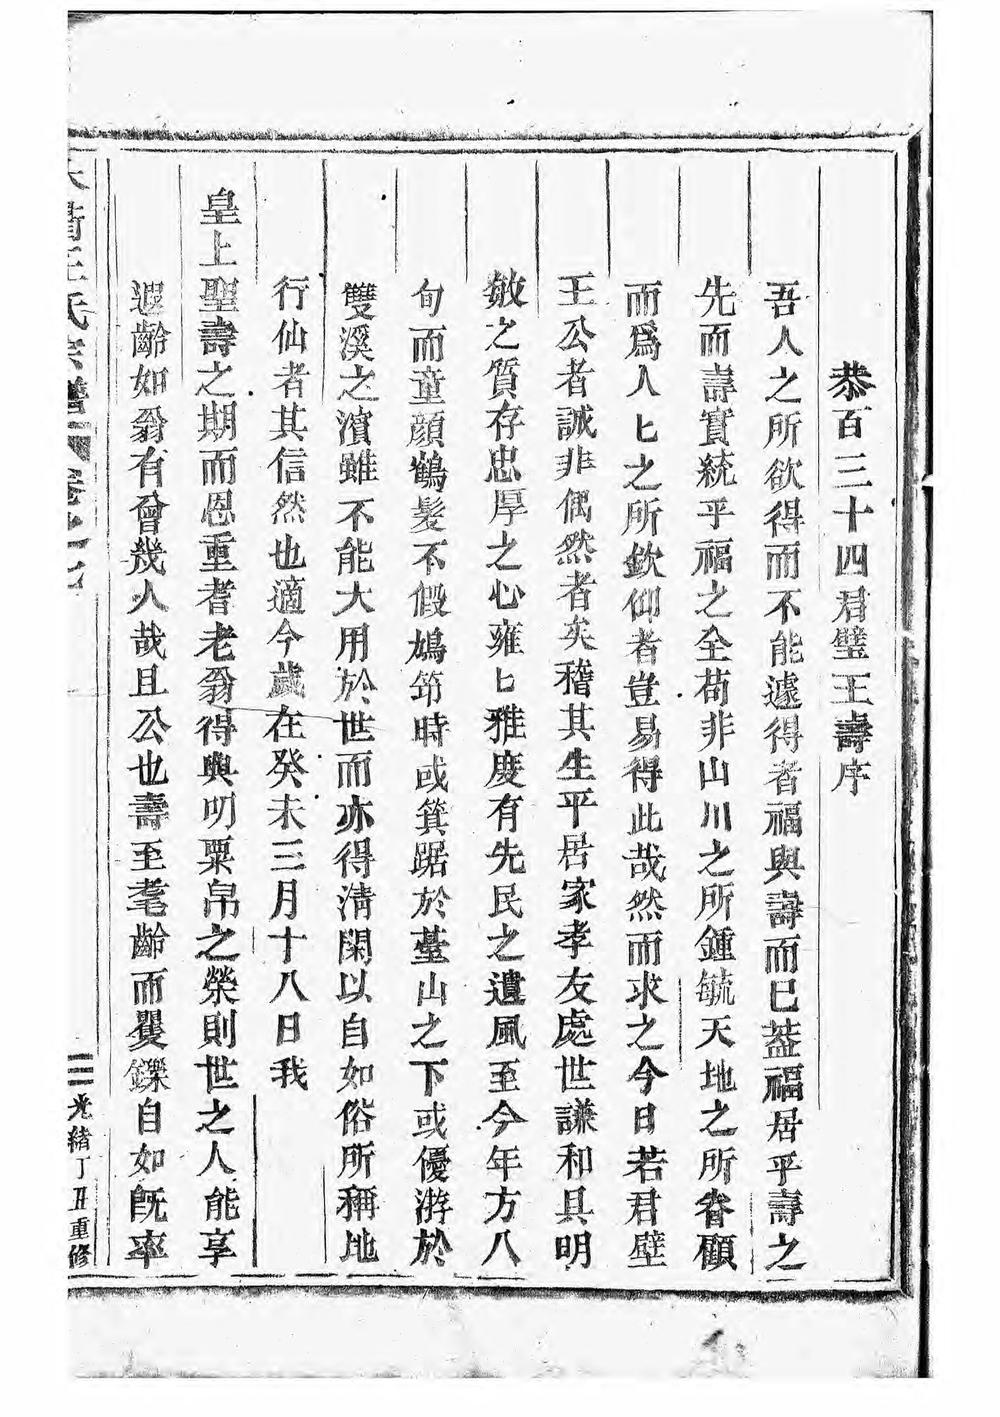 恭百三十四君璧王壽序
吾人之所欲得而不能遽得者福與壽而已葢福居乎壽之
先而壽實統乎福之全苟非山川之所鍾毓天地之所眷顧
而爲人匕之所欽仰者豈易得此哉然而求之今日若君璧
王公者誠非偶然者矣稽其生平居家孝友處世謙和具明
敏之質存忠厚之心雍匕雅度有先民之遺風至今年方八
旬而童顔鶴髮不假鳩筇時或箕踞於臺山之下或優游於
雙溪之濱雖不能大用於世而亦得清閑以自如俗所稱地
行仙者其信然也適今歲在癸未三月十八日我
皇上聖壽之期而恩重耆老翁得與叨粟帛之榮則世之人能享
遐齡如翁有曾幾人哉且公也壽至耄齡而矍鑠自如旣率
王氏宗譜 卷之七 三 光緒丁丑重修